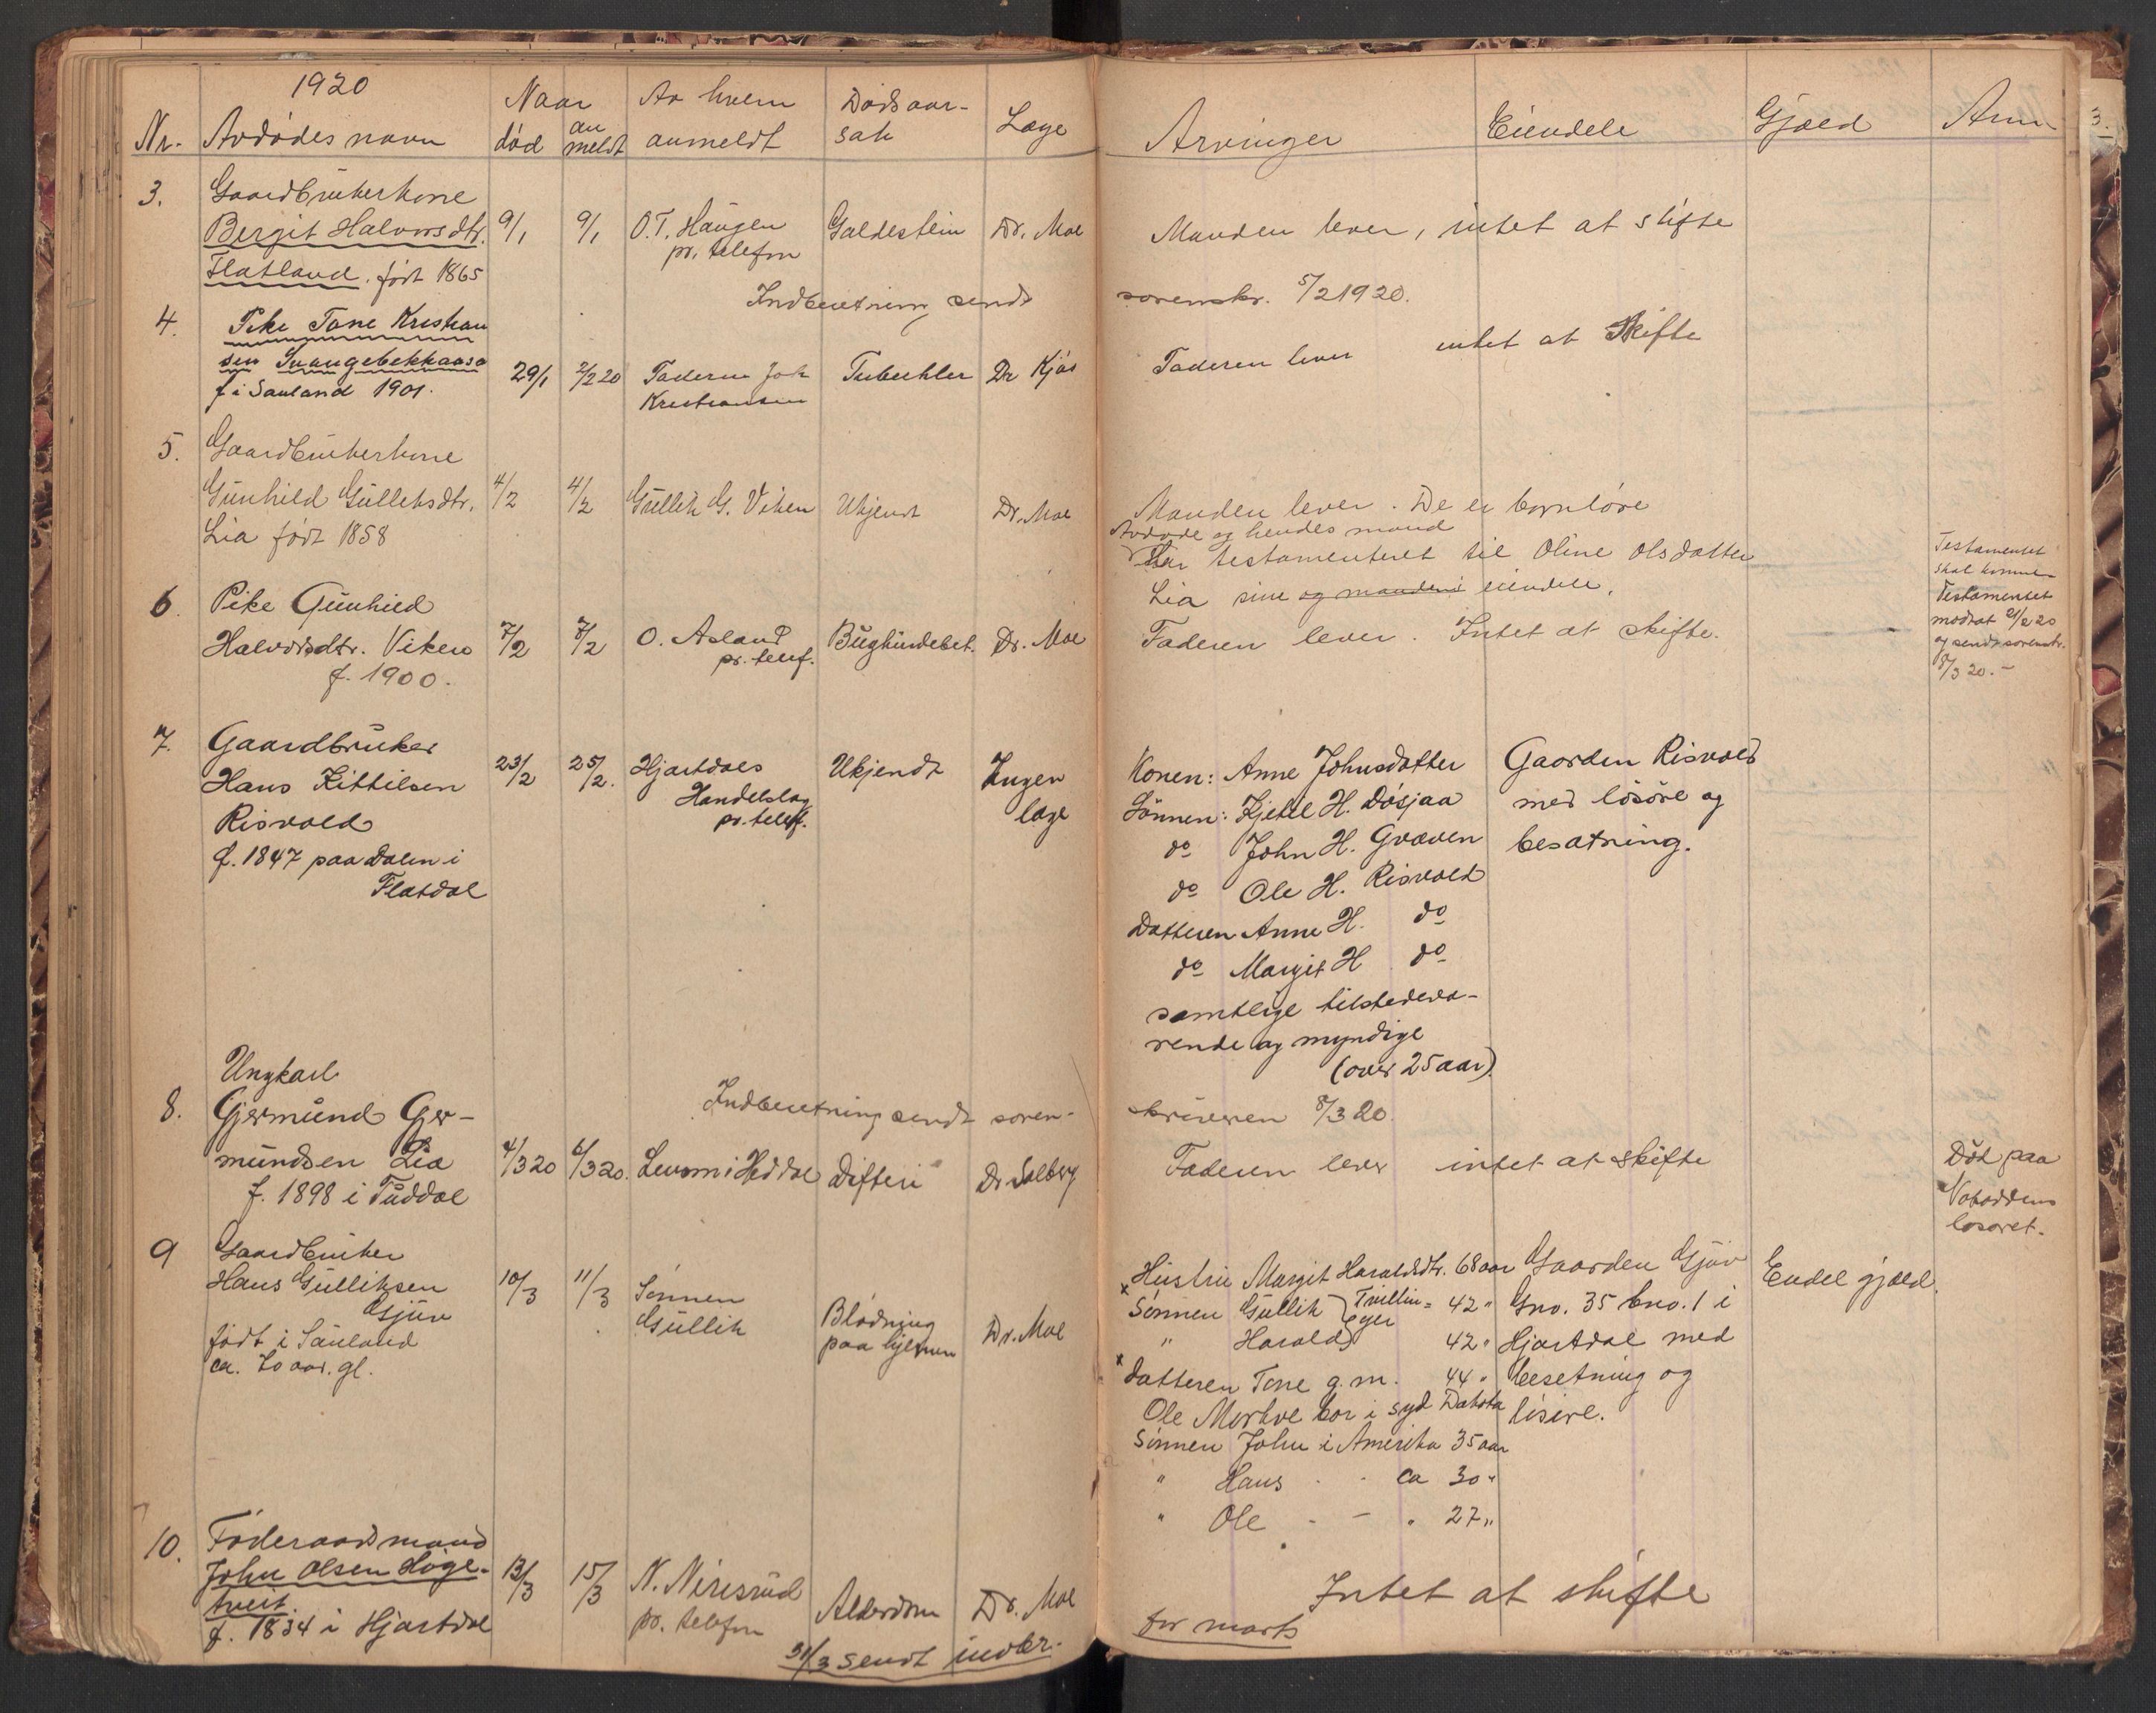 1920
Nr. Avdødes navn Naar død an meldt Av hvem anmeldt Dødsaar- sak Læge Arvinger Eiendele Gjæld Anm.
3.
3. Gaardbrukerkone
Bergit Halvorsdtr. 9/1 9/1 O.T. Haugen Galdestein Dr. Moe Manden lever, intet at skifte
pr. telefon
Flatland. født 1865
Indberetning sendt sorenskr. 5/2 1920.
4. Pike Tone Kristian
sen Svangebekkaasa 29/1 2/2 20 Faderen Joh Tuberkler Dr Kjøs Faderen lever intet at skifte
f i Sauland 1901. Kristiansen
5. Gaardbrukerkone
Gunhild Gulleksdtr. 4/2 4/2 Gullik G. Viken Ukjendt Dr. Moe Manden lever. De er barnløse
Lia født 1858
Avdøde og hendes mand
har testamenteret til Oline Olsdatter
Lia sine og mandens eiendele.
Testamentet
skal komme
Testamentet
modtat 21/2 20
og sendt sorenskr.
8/3 20. -
6. Pike Gunhild
Halvorsdtr. Viken 7/2 7/2 O. Asland Bughindebet. Dr. Moe Faderen lever. Intet at skifte.
pr. telef.
f. 1900.
7. Gaardbruker
Hans Kittilsen 23/2 25/2. Hjartdals Ukjendt Ingen
Risvold Handelslag læge
pr. telef.
f. 1847 paa Dalen i
Flatdal
Konen: Anne Johnsdatter Gaarden Risvold
Sönnen: Kjetil H. Døsjaa med løsøre og
do John H. Graven besætning.
do Ole H. Risvold
Datteren Anne H. do
do Margit H do
samtlige tilstedevæ-
rende og myndige
(over 25 aar).
Indberetning sendt soren- skriveren 8/3 20.
8. Ungkarl
Gjermund Gjer-
mundsen Lia 4/3 20 6/3 20. Lensm i Heddal Difteri Dr Solberg Faderen lever intet at skifte
f. 1898 i Tuddal
Död paa
Notoddens
lasaret.
9 Gaardbruker
Hans Gulliksen 10/3 11/3 Sønnen
Gjuv Gullik Blødning Dr. Moe
født i Sauland paa hjernen
ca. 70 aar. gl.
Hustru Margit Haraldsdtr. 68 aar Gaarden Gjuv Endel gjæld.
x Sønnen Gullik } Tvillin= 42 " Gno. 35 bno. 1 i
" Harald ger 42 " Hjartdal med
x Datteren Tone g.m. 44 " besetning og
Ole Morkve bor i syd Dakota løsøre.
Sønnen John i Amerika 35 aar
" Hans - - ca 30 "
" Ole - - " 27 "
10. Føderaadsmand
John Olsen Høge- 13/3 15/3 N. Nirisrud Alderdom Dr. Moe Intet at skifte
tveit pr. telefon
f. 1834 i Hjartdal
31/3 sendt indber. for marts